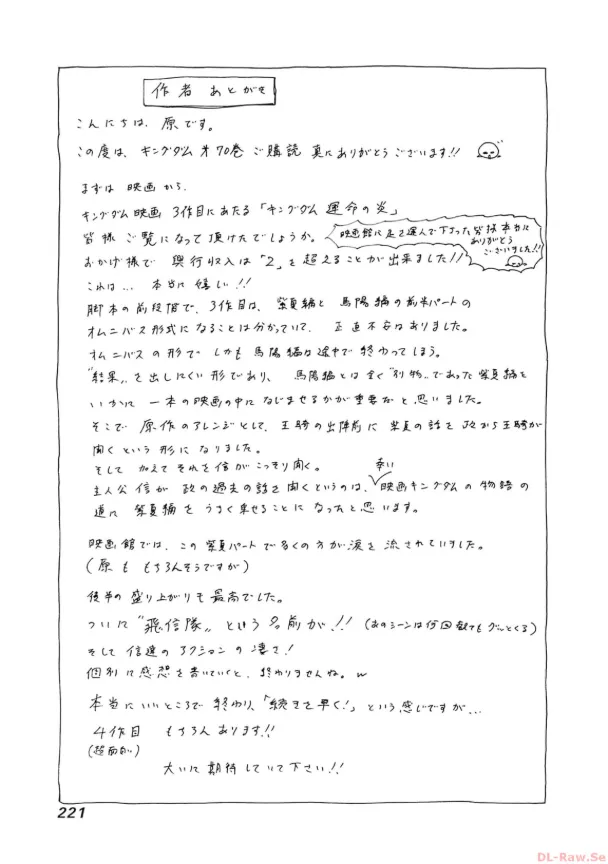 作者 あとがき
こんにちは、原です。
この度は、キングダム第70巻ご購読真にありがとうございます!!
まずは映画から。
キングダム映画3作目にあたる「キングダム 運命の炎」
皆様ご覧になって頂けたでしょうか。
映画館に足を運んで下さった皆様本当に
ありがとう
ございました!!
おかげ様で 興行収入は「2」を超えることが出来ました!!
これは… 本当に嬉しい!!
脚本の前段階で、3作目は、紫夏編と 馬陽編の前半パートの
オムニバス形式になることは分かっていて、正直不安はありました。
オムニバスの形で しかも馬陽編は途中で終わってしまう。
“結果„を出しにくい形であり、馬陽編とは全く“別物„であった紫夏編を
いかに 一本の映画の中になじませるかが重要だと思いました。
そこで 原作のアレンジとして、王騎の出陣前に 紫夏の話を政から王騎が
聞くという形になりました。
そして 加えてそれを信がこっそり聞く。
主人公信が 政の過去の話を聞くというのは、幸い映画キングダムの物語の
道に紫夏編をうまく乗せることになったと思います。
映画館では、この紫夏パートで多くの方が涙を流されていました。
(原も もちろんそうですが)
後半の盛り上がりも最高でした。
ついに“飛信隊”という名前が!! (あのシーンは何回観てもグッとくる)
そして信達のアクションの凄さ!
個別に感想を書いていくと、終わりませんね。w
本当にいいところで終わり、「続きを早く!」という感じですが…
4作目 もちろんあります!!
(超面白い)
大いに期待していて下さい!!
221
DL-Raw.Se